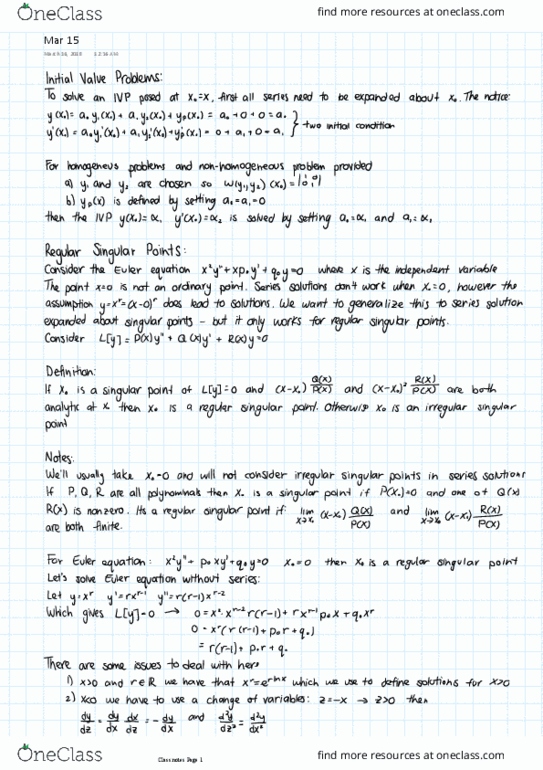 OneClass
find more resources at oneclass.com
Mar 15
Initial Value Problems:
To solve an IVP posed at x₀=x, first all series need to be expanded about x₀. The notice:
y(x₀)= a₀y₁(x₀) + a₁y₂(x₀) + yp(x₀) = a₀ + 0 + 0 = a₀
y'(x₀) = a₀y₁'(x₀) + a₁y₂'(x₀) + yp'(x₀) = 0 + a₁ + 0 = a₁
two initial condition
For homogeneus problems and non-homogeneous problem provided
a) y₁ and y₂ are chosen so W(y₁,y₂)(x₀) = |1 0; 0 1|
b) yp(x) is defined by setting a₀=a₁=0
then the IVP y(x₀)=α₁ y'(x₀)=α₂ is solved by setting a₀=α₁ and a₁=α₂
Regular Singular Points:
Consider the Euler equation x²y''+xp₀y'+q₀y=0 where x is the independent variable
The point x=0 is not an ordinary point. Series solutions don't work when x₀=0, however the
assumption y=xʳ=(x-0)ʳ does lead to solutions. We want to generalize this to series solution
expanded about singular points - but it only works for regular singular points.
Consider L[y] = P(x)y'' + Q(x)y' + R(x)y=0
Definition:
If x₀ is a singular point of L[y]=0 and (x-x₀) Q(x)/P(x) and (x-x₀)² R(x)/P(x) are both
analytic at x₀ then x₀ is a reguler singular point. Otherwise x₀ is an irregular singular
point
Notes:
We'll usually take x₀=0 and will not consider irregular singular points in series solutions
If P, Q, R are all polynominals then x₀ is a singular point if P(x₀)=0 and one of Q(x)
R(x) is nonzero. Its a regular singular point if: lim x→x₀ (x-x₀) Q(x)/P(x) and lim x→x₀ (x-x₀) R(x)/P(x)
are both finite.
For Euler equation: x²y''+ p₀xy'+q₀y=0 x₀=0 then x₀ is a regular singular point
Let's solve Euler equation without series:
Let y=xʳ y'=rxʳ⁻¹ y''=r(r-1)xʳ⁻²
Which gives L[y]=0 → 0=x² xʳ⁻² r(r-1)+ r xʳ⁻¹ p₀x + q₀xʳ
0 = xʳ(r(r-1)+p₀r+q₀)
= r(r-1) + p₀r + q₀
There are some issues to deal with here
1) x>0 and r∈R we have that xʳ=e^(rlnx) which we use to define solutions for x>0
2) x<0 we have to use a change of variables: z=-x → z>0 then
dy/dz = dy/dx dx/dz = -dy/dx and d²y/dz² = d²y/dx²
Class notes Page 1
OneClass
find more resources at oneclass.com